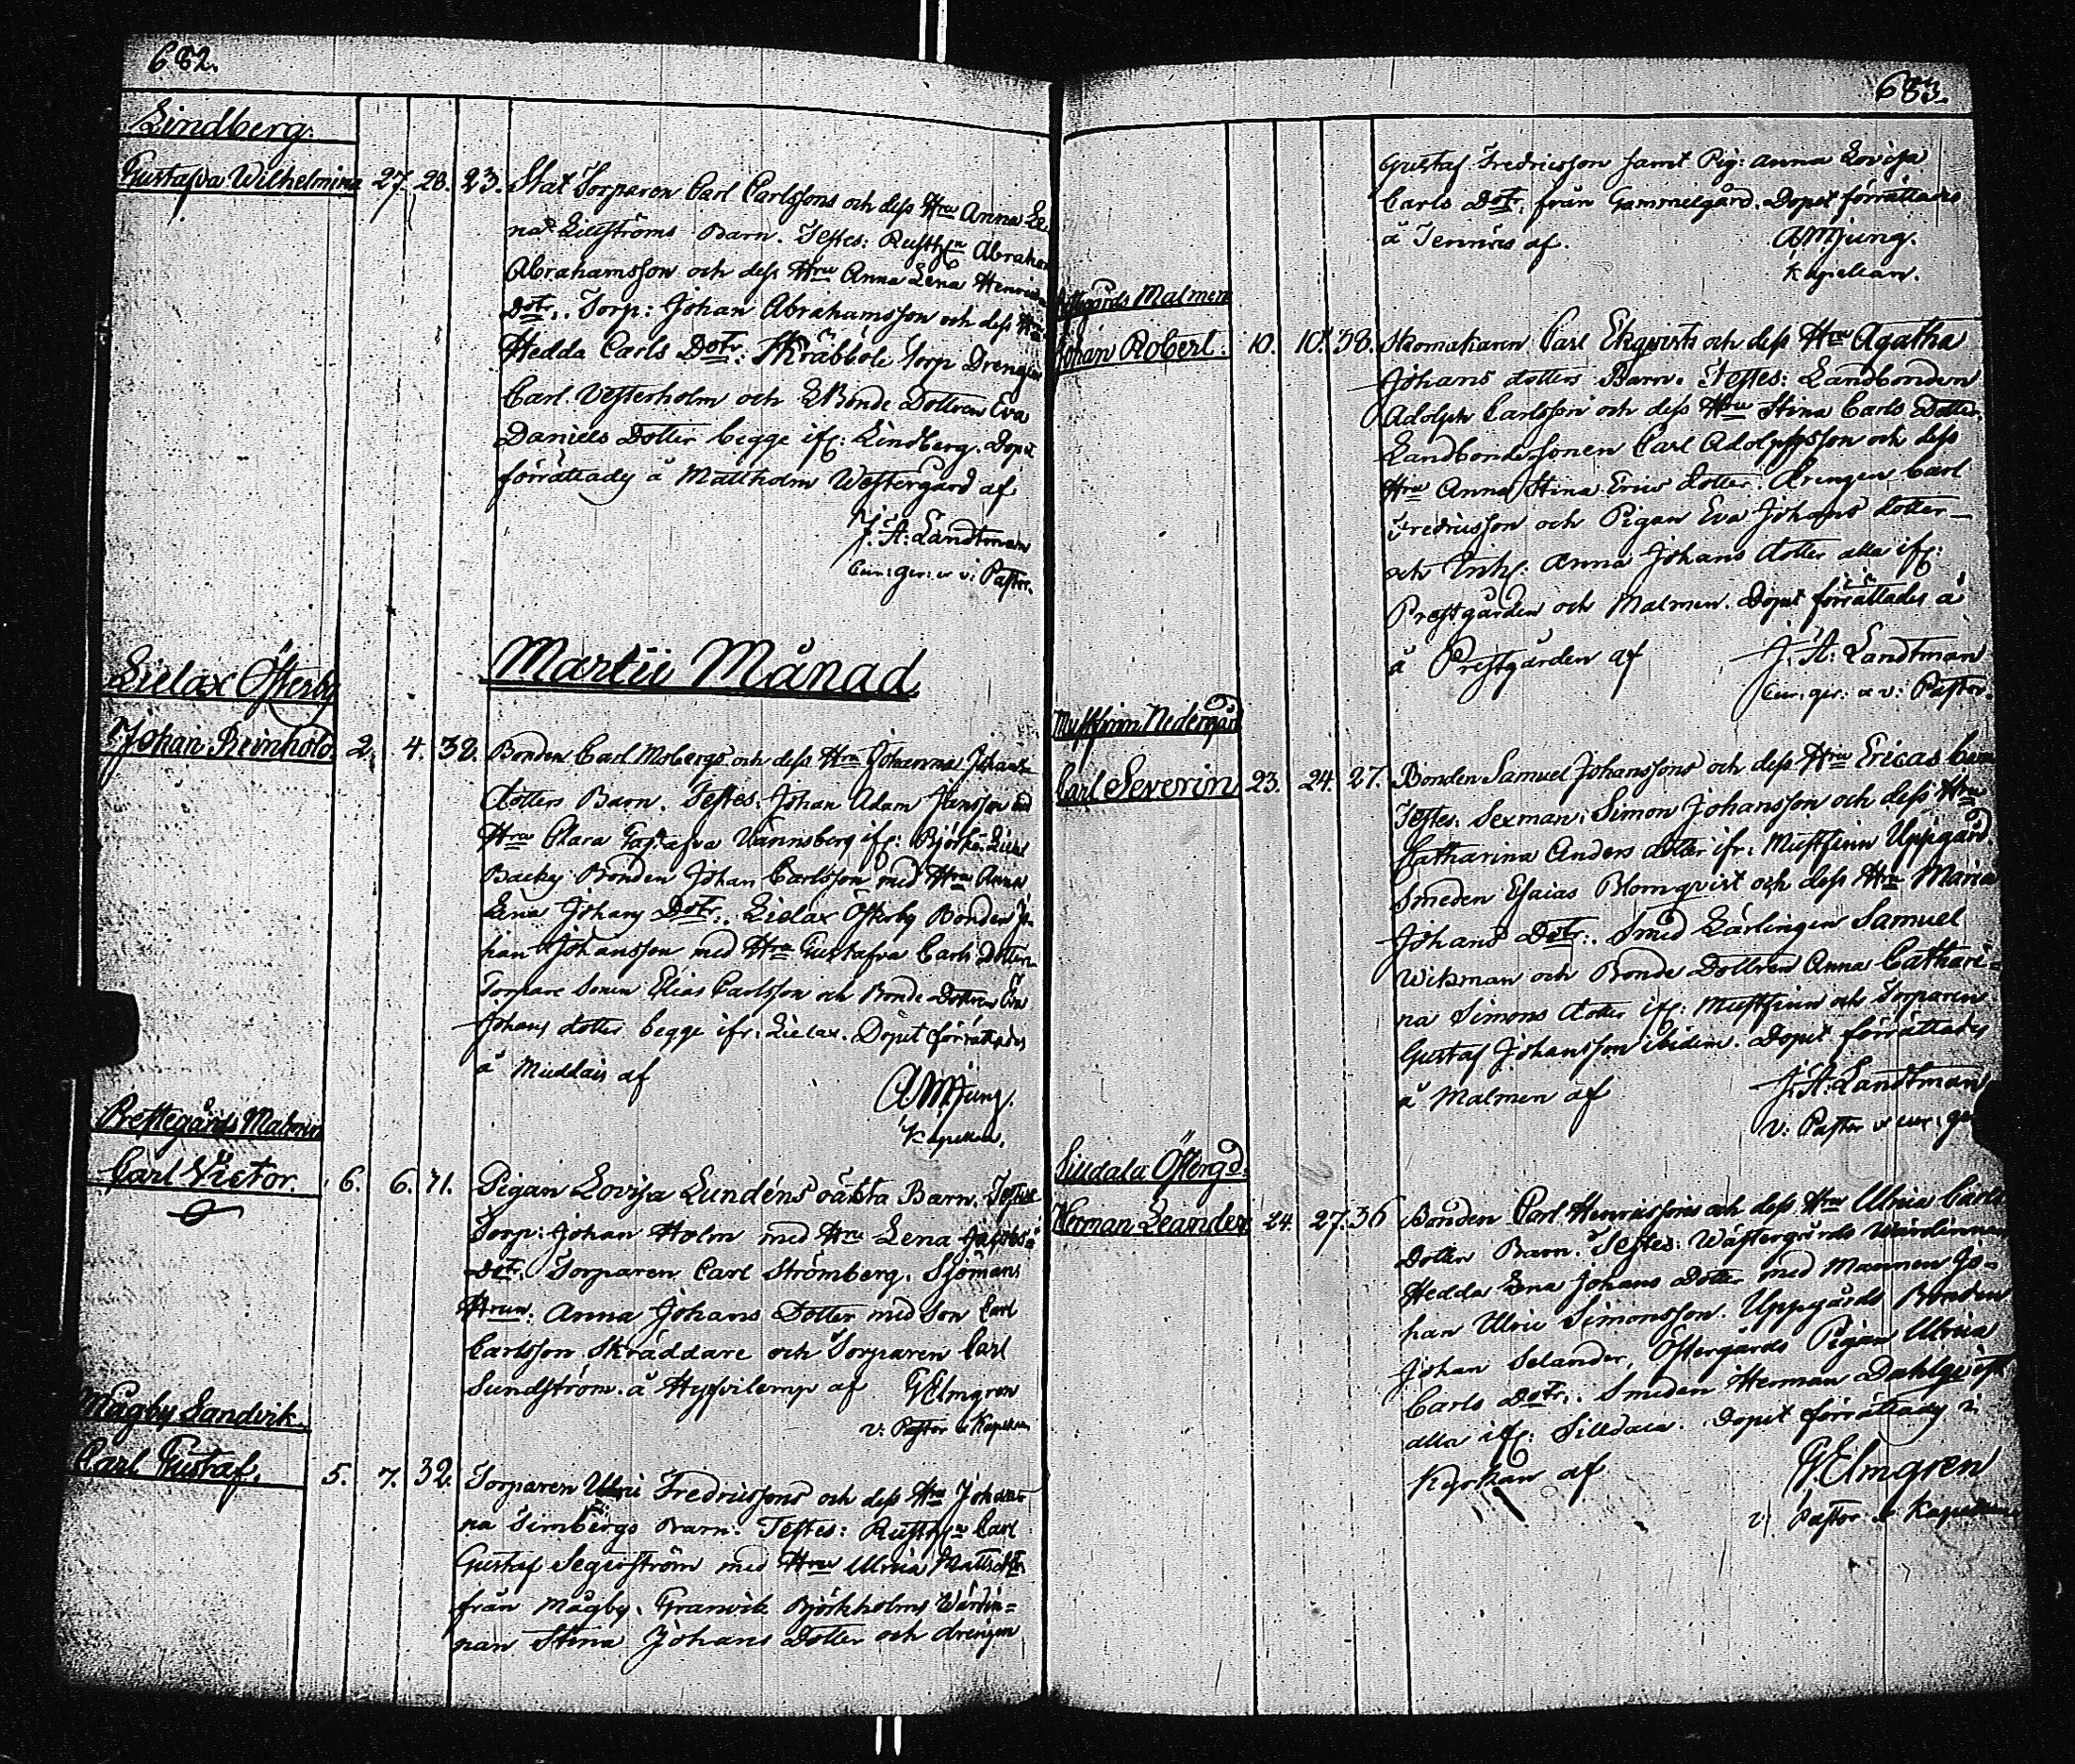 682.
Lindberg.
Gustafva Wilhelmina 27. 28. 23. Stat Torparen Carl Carlssons och dess Hru Anna Le
na Liljströms Barn. Testes: Rusth Abraham
Abrahamsson och dess Hru Anna Lena Henrics
Dotr. Torp: Johan Abrahamsson och dess Hru
Hedda Carls Dotr: Skräbböle Torp Drengen
Carl Vesterholm och Bonde Dottren Eva
Daniels Dotter begge ifr: Lindberg. Dopet
förrättades å Mattholm Westergård af
J. A: Landtman
Cur: ger: o v: Pastor.
Martii Månad
Lielax Österby
Johan Reinhold. 2. 4. 32. Bonden Carl Mobergs och dess Hru Johanna Johans
dotters Barn. Testes: Johan Adam Jansson med
Hru Clara Gustafva Vännsberg ifr: Björkö
Backey Bonden Johan Carlsson med Hru Anna
Lena Johans Dotr: Lielax Österby Bonden Jo
han Johansson med Hru Gustafva Carls Dotter
Torpare Sonen Elias Carlsson och Bonde Dottren Eva
Johans dotter begge ifr: Lielax. Dopet förrättades
å Muddais af
A M Jung.
Kapellan.
Prestegårds Malmen
Carl Victor. 6. 6. 71. Pigan Lovisa Lundéns oäkta Barn. Testes
Torp: Johan Holm med Hru Lena Jacobs
Dotr. Torparen Carl Strömberg. Sjömans
Hrun: Anna Johans Dotter med Son Carl
Carlsson Skräddare och Torparen Carl
Sundström. å af G Elmgren
v: Pastor & Kapellan
Mågby Sandvik.
Carl Gustaf. 5. 7. 32. Torparen Ulric Fredricssons och dess Hru Johan
na Simbergs Barn. Testes: Rusth Carl
Gustaf Segerström med Hru Ulrica Matts dotr
från Mågby, Granvik Björkholms Wärdin=
nan Stina Johans Dotter och drengen
683.
Gustaf Fredricsson samt Pig: Anna Lovisa
Carls Dotr: från Gammelgård. Dopet förrättades
å Tennäs af. A M Jung.
Kapellan.
Prestgårds Malmen
Johan Robert. 10. 10. 38. Skomakaren Carl Ekqvists och dess Hru Agatha
Johans dotters Barn. Testes: Landbonden
Adolph Carlsson och dess Hru Stina Carls Dotter.
Landbondesonen Carl Adolphsson och dess
Hru Anna Stina Erics dotter. Drengen Carl
Fredricsson och Pigan Eva Johans dotter
och Enk: Anna Johans dotter alla ifr:
Prestgården och Malmen. Dopet förrättades å
å Prestgården af J: A: Landtman
Cur: ger: o v: Pastor.
Mustfinn Nedergård
Carl Severin 23. 24. 27. Bonden Samuel Johanssons och dess Hru Ericas barn
Testes. Sexman: Simon Johansson och dess Hru
Catharina Anders dotter ifr: Mustfinn Uppgård.
Smeden Esaias Blomqvist och dess Hru Maria
Johans Dotr: Smed Lärlingen Samuel
Wikman och Bonde Dottren Anna Cathari=
na Simons dotter ifr: Mustfinn och Torparen
Gustaf Johansson ibidem. Dopet förrättades
å Malmen af J: A: Landtman
v: Pastor o cur: ger
Silldala Österg d.
Herman Leander 24. 27. 36 Bonden Carl Henricssons och dess Hru Ulrica Carls
Dotter Barn. Testes: Wästergårds Wärdinnan
Hedda Lena Johans Dotter med Mannen Jo=
han Ulric Simonsson. Uppgårds Bonden
Johan Selander, Östergårds Pigan Ulrica
Carls Dotr. Smeden Herman Dahlqvist
alla ifr: Silldala. Dopet förrättades i
Kyrkan af G. Elmgren
v: Pastor & Kapellan